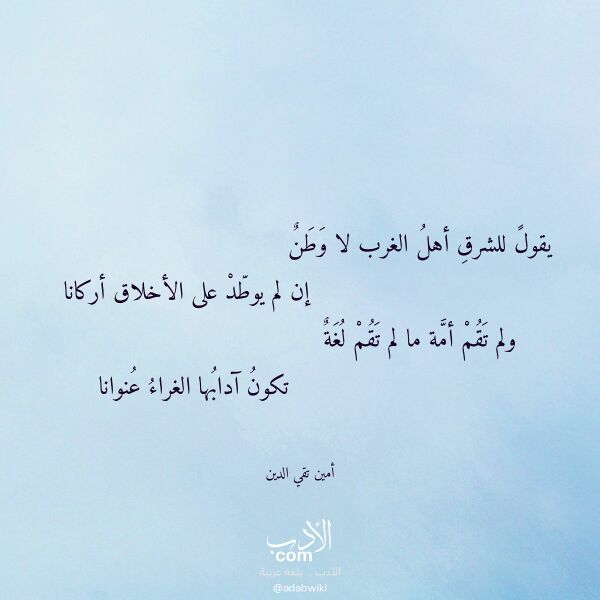 يقولً للشرقِ أهلُ الغرب لا وَطَنٌ
إن لم يوطّدْ على الأخلاق أركانا
ولم تَقُمْ أمَّة ما لم تَقُمْ لُغَةٌ
تكونُ آدابُها الغراءُ عُنوانا
أمين تقي الدين
الأدب
com
الأدب .. بلغة عربية
@adabwiki